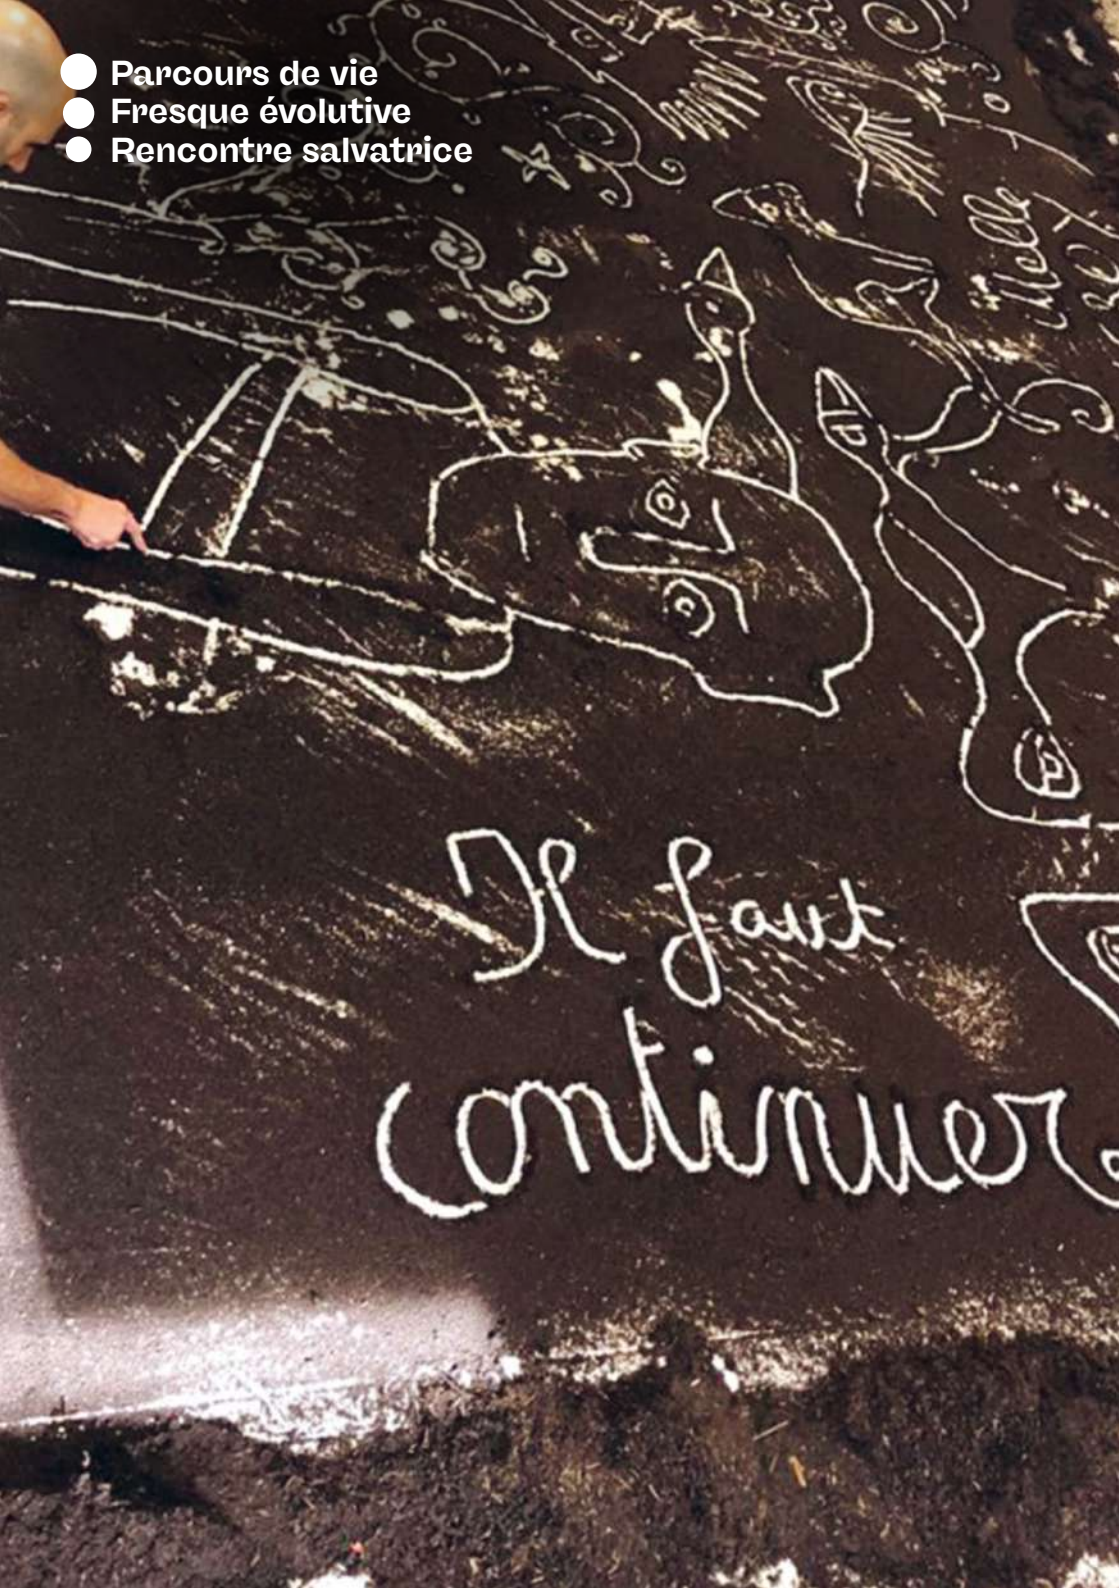 Parcours de vie
Fresque évolutive
Rencontre salvatrice
Il faut
continuer